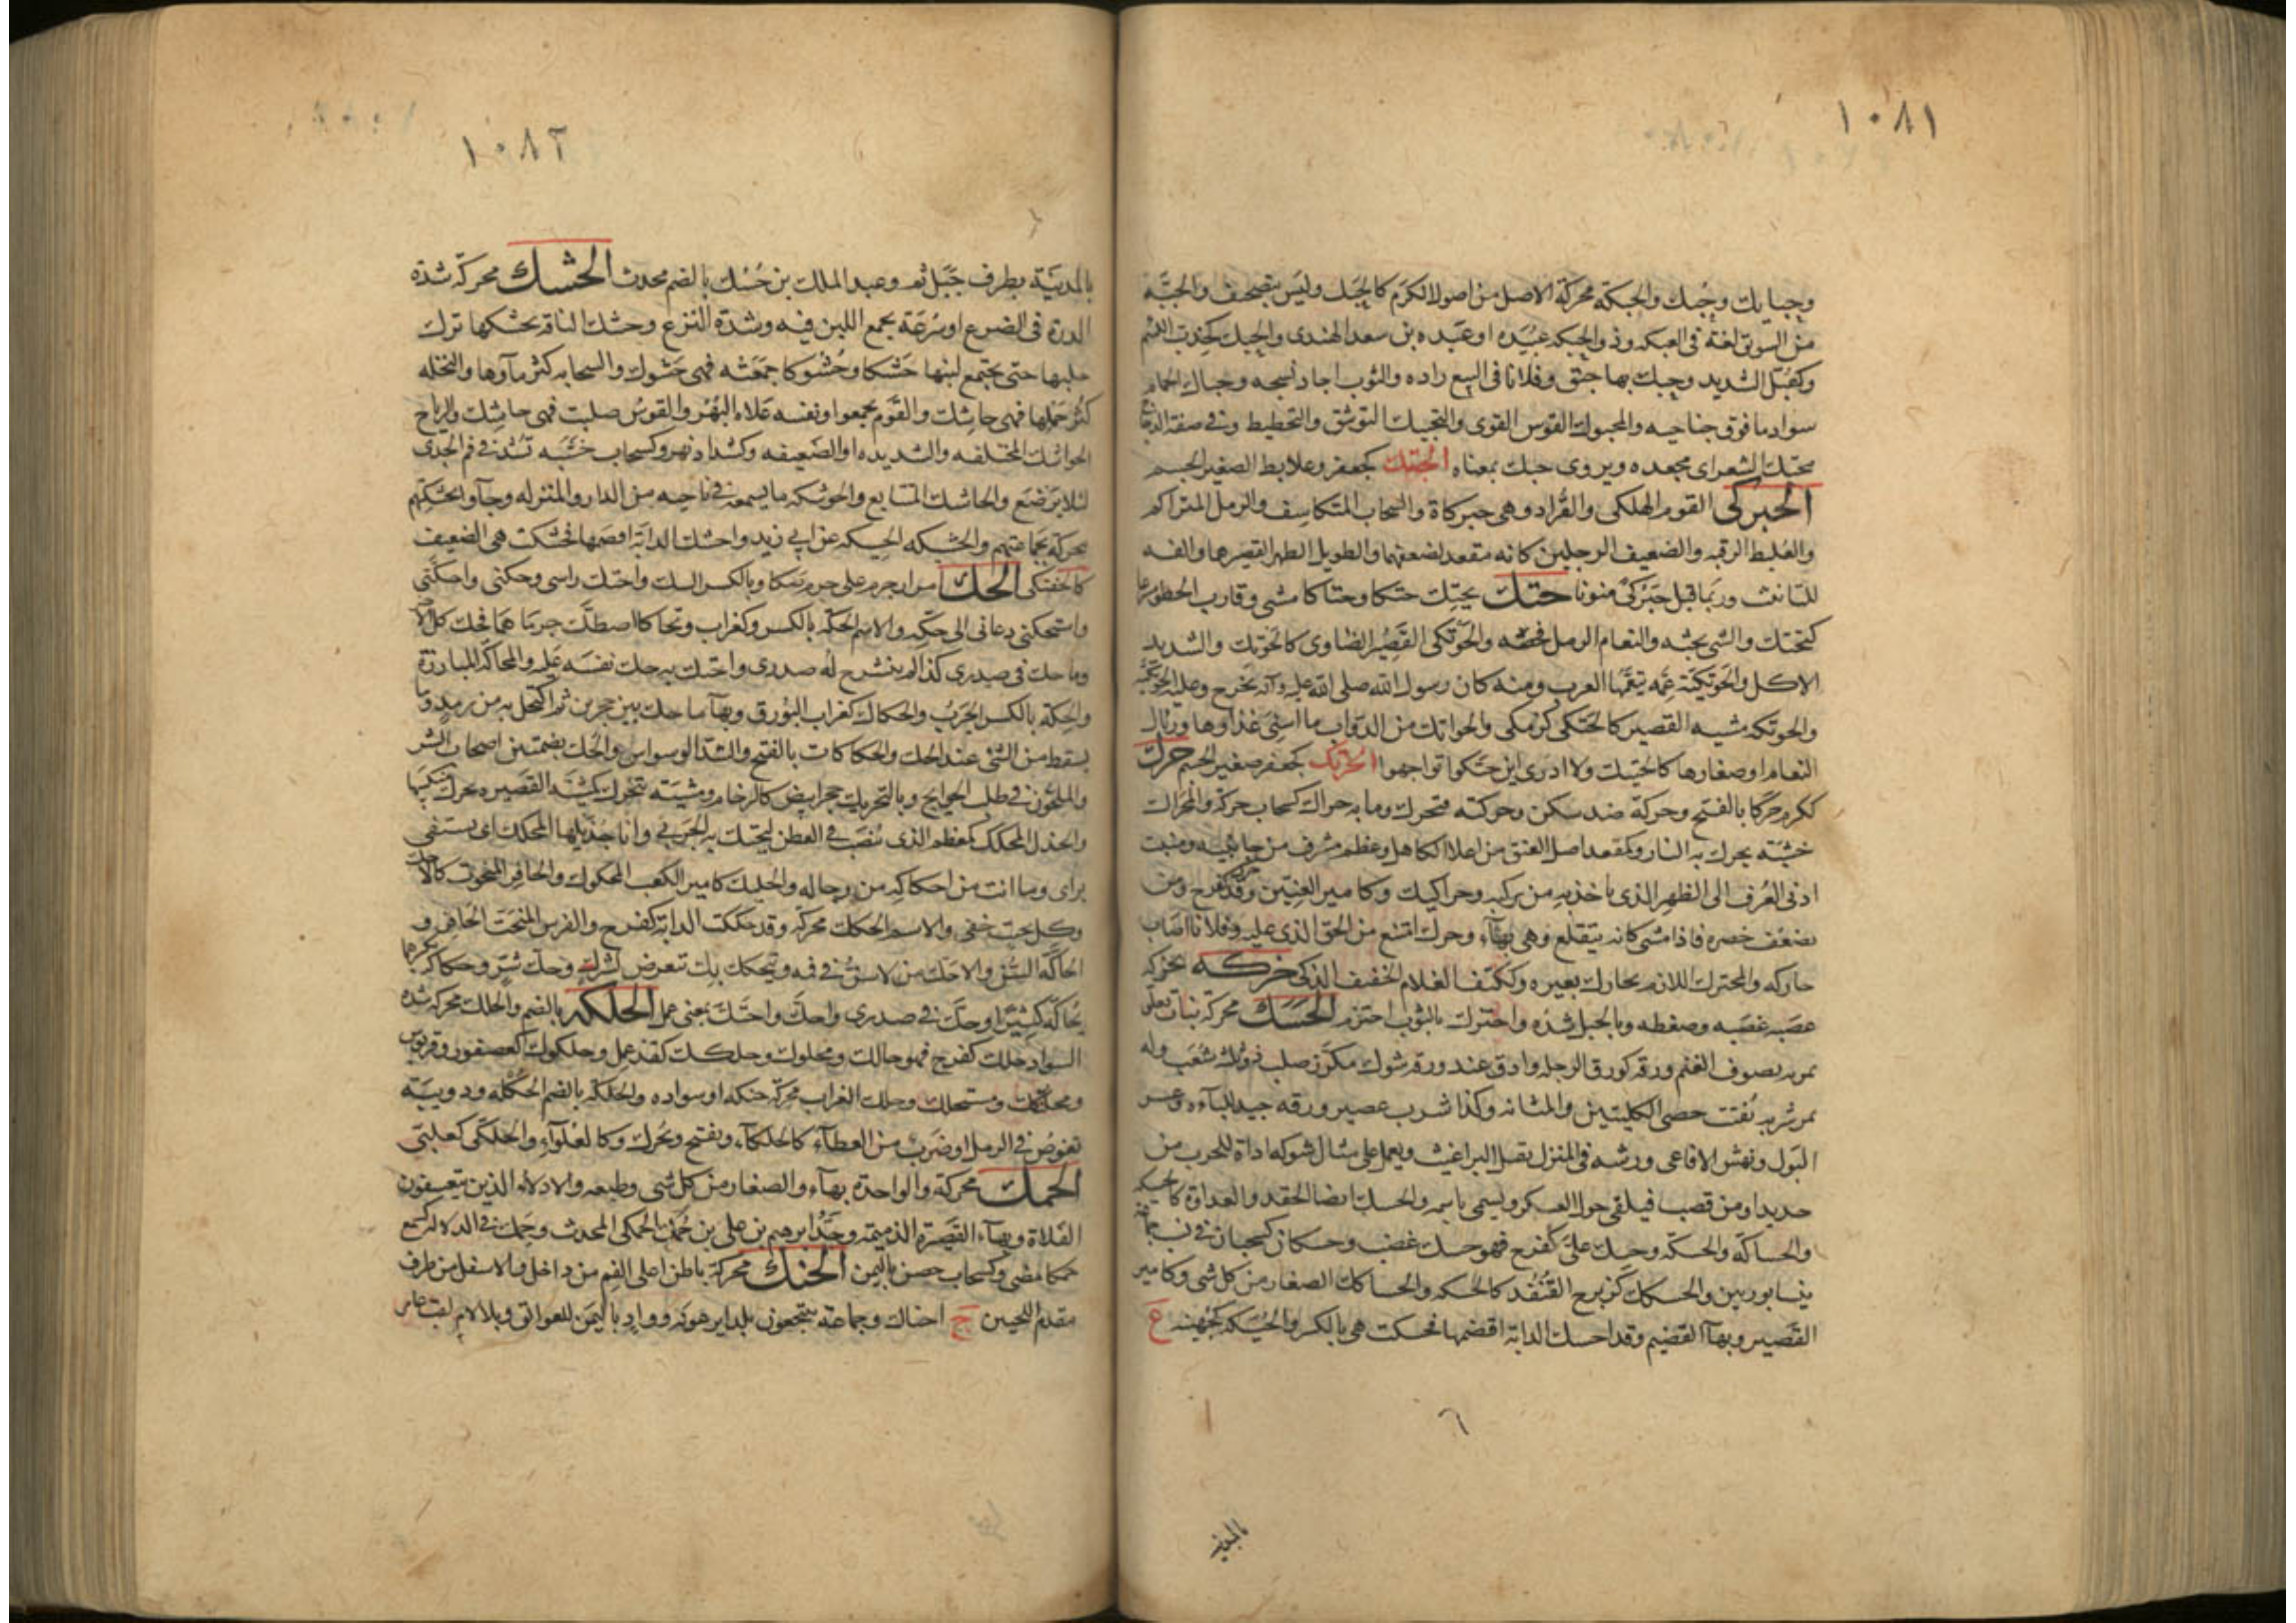 ١٠٨١
وحبايك وحُبك والحبكة محركة الاصل من اصول الكرم كالحَبَك وليس بتصحيف والحبَّة
من السويق لغة فى العبكه وذو الحبكه عبيده او عبده بن سعد الهندى والحِبك كخدب اللئيم
وكعُتلّ الشديد وحبك بها حبق وفلانا فى البيع راده والثوب اجاد نسجه وحباك الحمام
سواد ما فوق جناحيه والمحبوك الفرس القوى والتحبيك التوثيق والتخطيط وفى صفة الدجال
محبّك الشعر اى مجعده ويروى حبك بمعناه الحبتك كجعفر وعلابط الصغير الجسم
الحبركى القوم الهلكى والقُراد وهى حبركاة والسحاب المتكاسف والرمل المتراكم
والغليظ الرقبه والضعيف الرجلين كانه مقعد لضعفهما والطويل الظهر القصيرهما والفه
للتانيث وربما قيل حَبَرْكىً منونا حتك يحتك حتكا وحتكانا مشى وقارب الخطو مسرعا
كتحتك والشى بحثه والنعام الرمل فحصه والحَوتكى القصير الضاوى كالحوتك والشديد
الاكل والحَوتَكيَّة عِمَّة يتعمَّمها العرب ومنه كان رسول الله صلى الله عليه وآله يخرج وعليه الحوتكية
والحوتكه مشيه القصير كالحتكى كزمكى والحواتك من الدواب ما اسئى غذاوها ورئال
النعام او صغارها كالحتك ولا ادرى اين حتكوا توجهوا الحترك كجعفر صغير الجسم حرك
ككرم حركا بالفتح وحركة ضد سكن وحركته فتحرك وما به حراك كسحاب حركة والمحراك
خشبة يحرك به النار وكمقعد اصل العنق من اعلاه والكاهل وعظم مشرف من جانبيه ومنبت
ادنى العرف الى الظهر الذى ياخذ به من يركبه وحراكيك وكامير العنين وقد حرك كفرح ومن
يضعف خصره فاذا مشى كانه يتقلع وهى بهاء وحرك امتنع من الحق الذى عليه وفلانا اصاب
حاركه والمحترك اللازم بحارك بعيره وككتف الغلام الخفيف الذكى حزكه يحزكه
عصبه غصبه وضغطه وبالحبل شده واحتزك بالثوب احتزم الحسك محركة نبات تعلق
ثمرته بصوف الغنم ورقه كورق الرجله وادق عند ورقه شوك مكزز صلب ذو ثلث شعب وله
ثمر شربه يفتت حصى الكليتين والمثانه وكذا شرب عصير ورقه جيد للباءه وعسر
البول ونهش الافاعى ورشه فى المنزل يقتل البراغيث ويعمل على مثال شوكه اداة للحرب من
حديد او من قصب فيلقى حول العسكر ويسمى باسمه والحسك ايضا الحقد والعداوة كالحسيكه
والحساكه والحسكه وحسك علىّ كفرح فهو حسك غضب وحسكان كسحبان فى نسب جماعة
نيسابوريين والحسكك كزبرج القنفد كالحسكه والحساكك الصغار من كل شى وكامير
القصير وبهاء القضيم وقد احسك الدابة اقضمها فحسكت هى بالكسر والحُسَيكه كجهينه ع
٦
بالمدينه
١٠٨٢
بالمدينة بطرف جبل ثم وعبد الملك بن حُسُك بالضم محدث الحشك محركة شدة
الدرة فى الضرع او سُرعة تجمع اللبن فيه وشدة النزع وحشك الناقة يحشكها ترك
حلبها حتى يجتمع لبنها حَشكا وحُشوكا جمعته فهى حَشوك والسحابه كثر مآوها والنخله
كثر حَملها فهى حاشك والقوم تجمعوا ونفسه علاه البُهْر والقوس صلبت فهى حاشك والرياح
الحواشك المختلفه والشديده او الضعيفه وكشداد نهر وكسحاب خشبه تُشد فى فم الجدى
لئلا يرضع والحاشك المتتابع والحوشكه ما يسمعه فى ناحيه من الدار والمنزله وجآو ابحشكتهم
محركة بجماعتهم والحشكه الحسيكه عن ابى زيد واحشك الدابة اقضمها فحشكت هى الضعيف
كالحفنكى الحك امرار جرم على جرم صكا وبالكسر الشك واحتك راسى وحكنى واحكنى
واستحكنى دعانى الى حكه والاسم الحكة بالكسر وكغراب وتحاكا اصطك جرما هما فحك كل الاخر
وما حك فى صدرى كذا لم ينشرح له صدرى واحتك به حك نفسه عليه والمحاكّة المباراة
والحكة بالكسر الجرب والحكاك كغراب البورق وبهآ ما حك بين حجرين ثم اكتحل به من رمد وما
يسقط من الشئ عند الحك والحكاكات بالفتح والشد الوسواس والحُك بضمتين اصحاب الشر
والملحون فى طلب الحوايج وبالتحريك حجر ابيض كالرخام ومشية بتحرك كمشية القصيره تحرك منكبيها
والجذل المحكك كمعظم الذى نُصب فى العطن لتحتك به الجربى وانا جُذيلها المحكك اى يستشفى
براى وما انت من احكاكه من رجاله والحكيك كامير الكعب المحكوك والحافر المنحوت كالاحك
وكل نحيت خفى والاسم الحكك محركة وقد حككت الدابة كفرح والفرس المنحت الحافر و
الحاكّة السن والاحك من لا سن فى فمه ويتحكك بك تتعرض لشرك وحك شر وحكاكه بكسرهما
يحاكه كثيرا وحك فى صدرى واحك واحتك بمعنى عمل الحلكه بالضم والحلك محركة شدة
السواد حلك كفرح فهو حالك ومحلولك وحلكك كقذعمل وحلكوك كعصفور وقربوس
ومحلنكك ومستحلك وحلك الغراب محركة حنكه او سواده والحلكة بالضم الحكله ودويبة
تغوص فى الرمل او ضرب من العظآء كالحلكآء ويفتح ويحرك وكالغلوآء والحلكى كعلبّى
الحمك محركة والواحدة بهآء والصغار من كل شى وطبعه والادلاء الذين يتعسفون
الفلاة وبهاء القصيرة الذميمة وجد ابرهيم بن على بن حُمَك الحمكى المحدث وحمك فى الدلاله كسمع
حمكا مضى وكسحاب حصن باليمن الحنك محركة باطن اعلى الفم من داخل والاسفل من طرف
مقدم اللحيين ج احناك وجماعة ينتجعون بلدا يرعونه وواد باليمن للعوالق وبلا لام لقب عامر